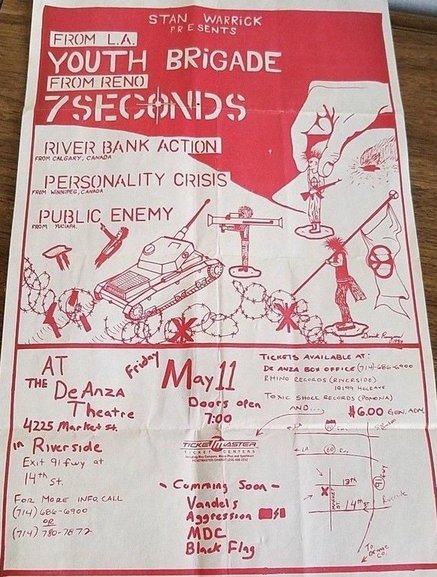 STAN WARRICK
PRESENTS
FROM L.A.
YOUTH BRIGADE
FROM RENO
7 SECONDS
RIVER BANK ACTION
FROM CALGARY, CANADA
PERSONALITY CRISIS
FROM WINNIPEG, CANADA
PUBLIC ENEMY
FROM YUCIAPA
AT
THE DeANZA
Theatre
4225 Market st.
in Riverside
Exit 91 fwy at
14th st.
FOR MORE INFO, CALL
(714) 686-6900
OR
(714) 780-7872
Friday
May 11
Doors open
7:00
TICKETMASTER
TICKET CENTERS
- Comming Soon -
Vandels
Aggression
MDC
Black Flag
TICKETS AVAILABLE AT:
DE ANZA BOX OFFICE (714) 686-6900
RHINO RECORDS (RIVERSIDE)
TOXIC SHOCK RECORDS (POMONA)
AND...
$6.00 GEN. ADM.
LA
60
91
MARKET
13th
14th
TO
ORANGE
CO.